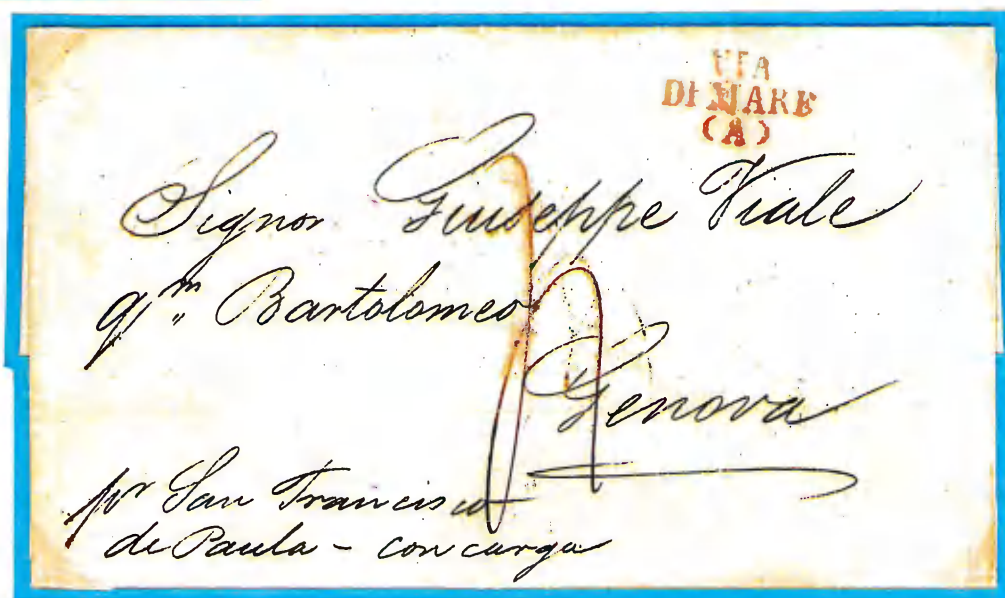 VIA
DI MARE
(A)
Signor Giuseppe Viale
qm. Bartolomeo
Genova
pr San Francisco
de Paula - con carga